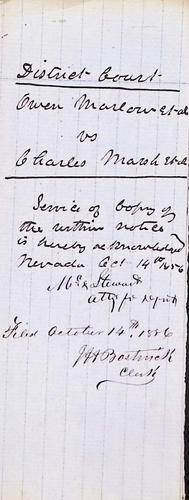 District Court
Owen Marlow et al
vs
Charles Marsh et al
Service of Copy of
the within notice
is hereby acknowledged
Nevada Oct 14th 1856
Mc & Stewart
Atty for Defts
Filed October 14th 1856
J H Bostwick
Clerk